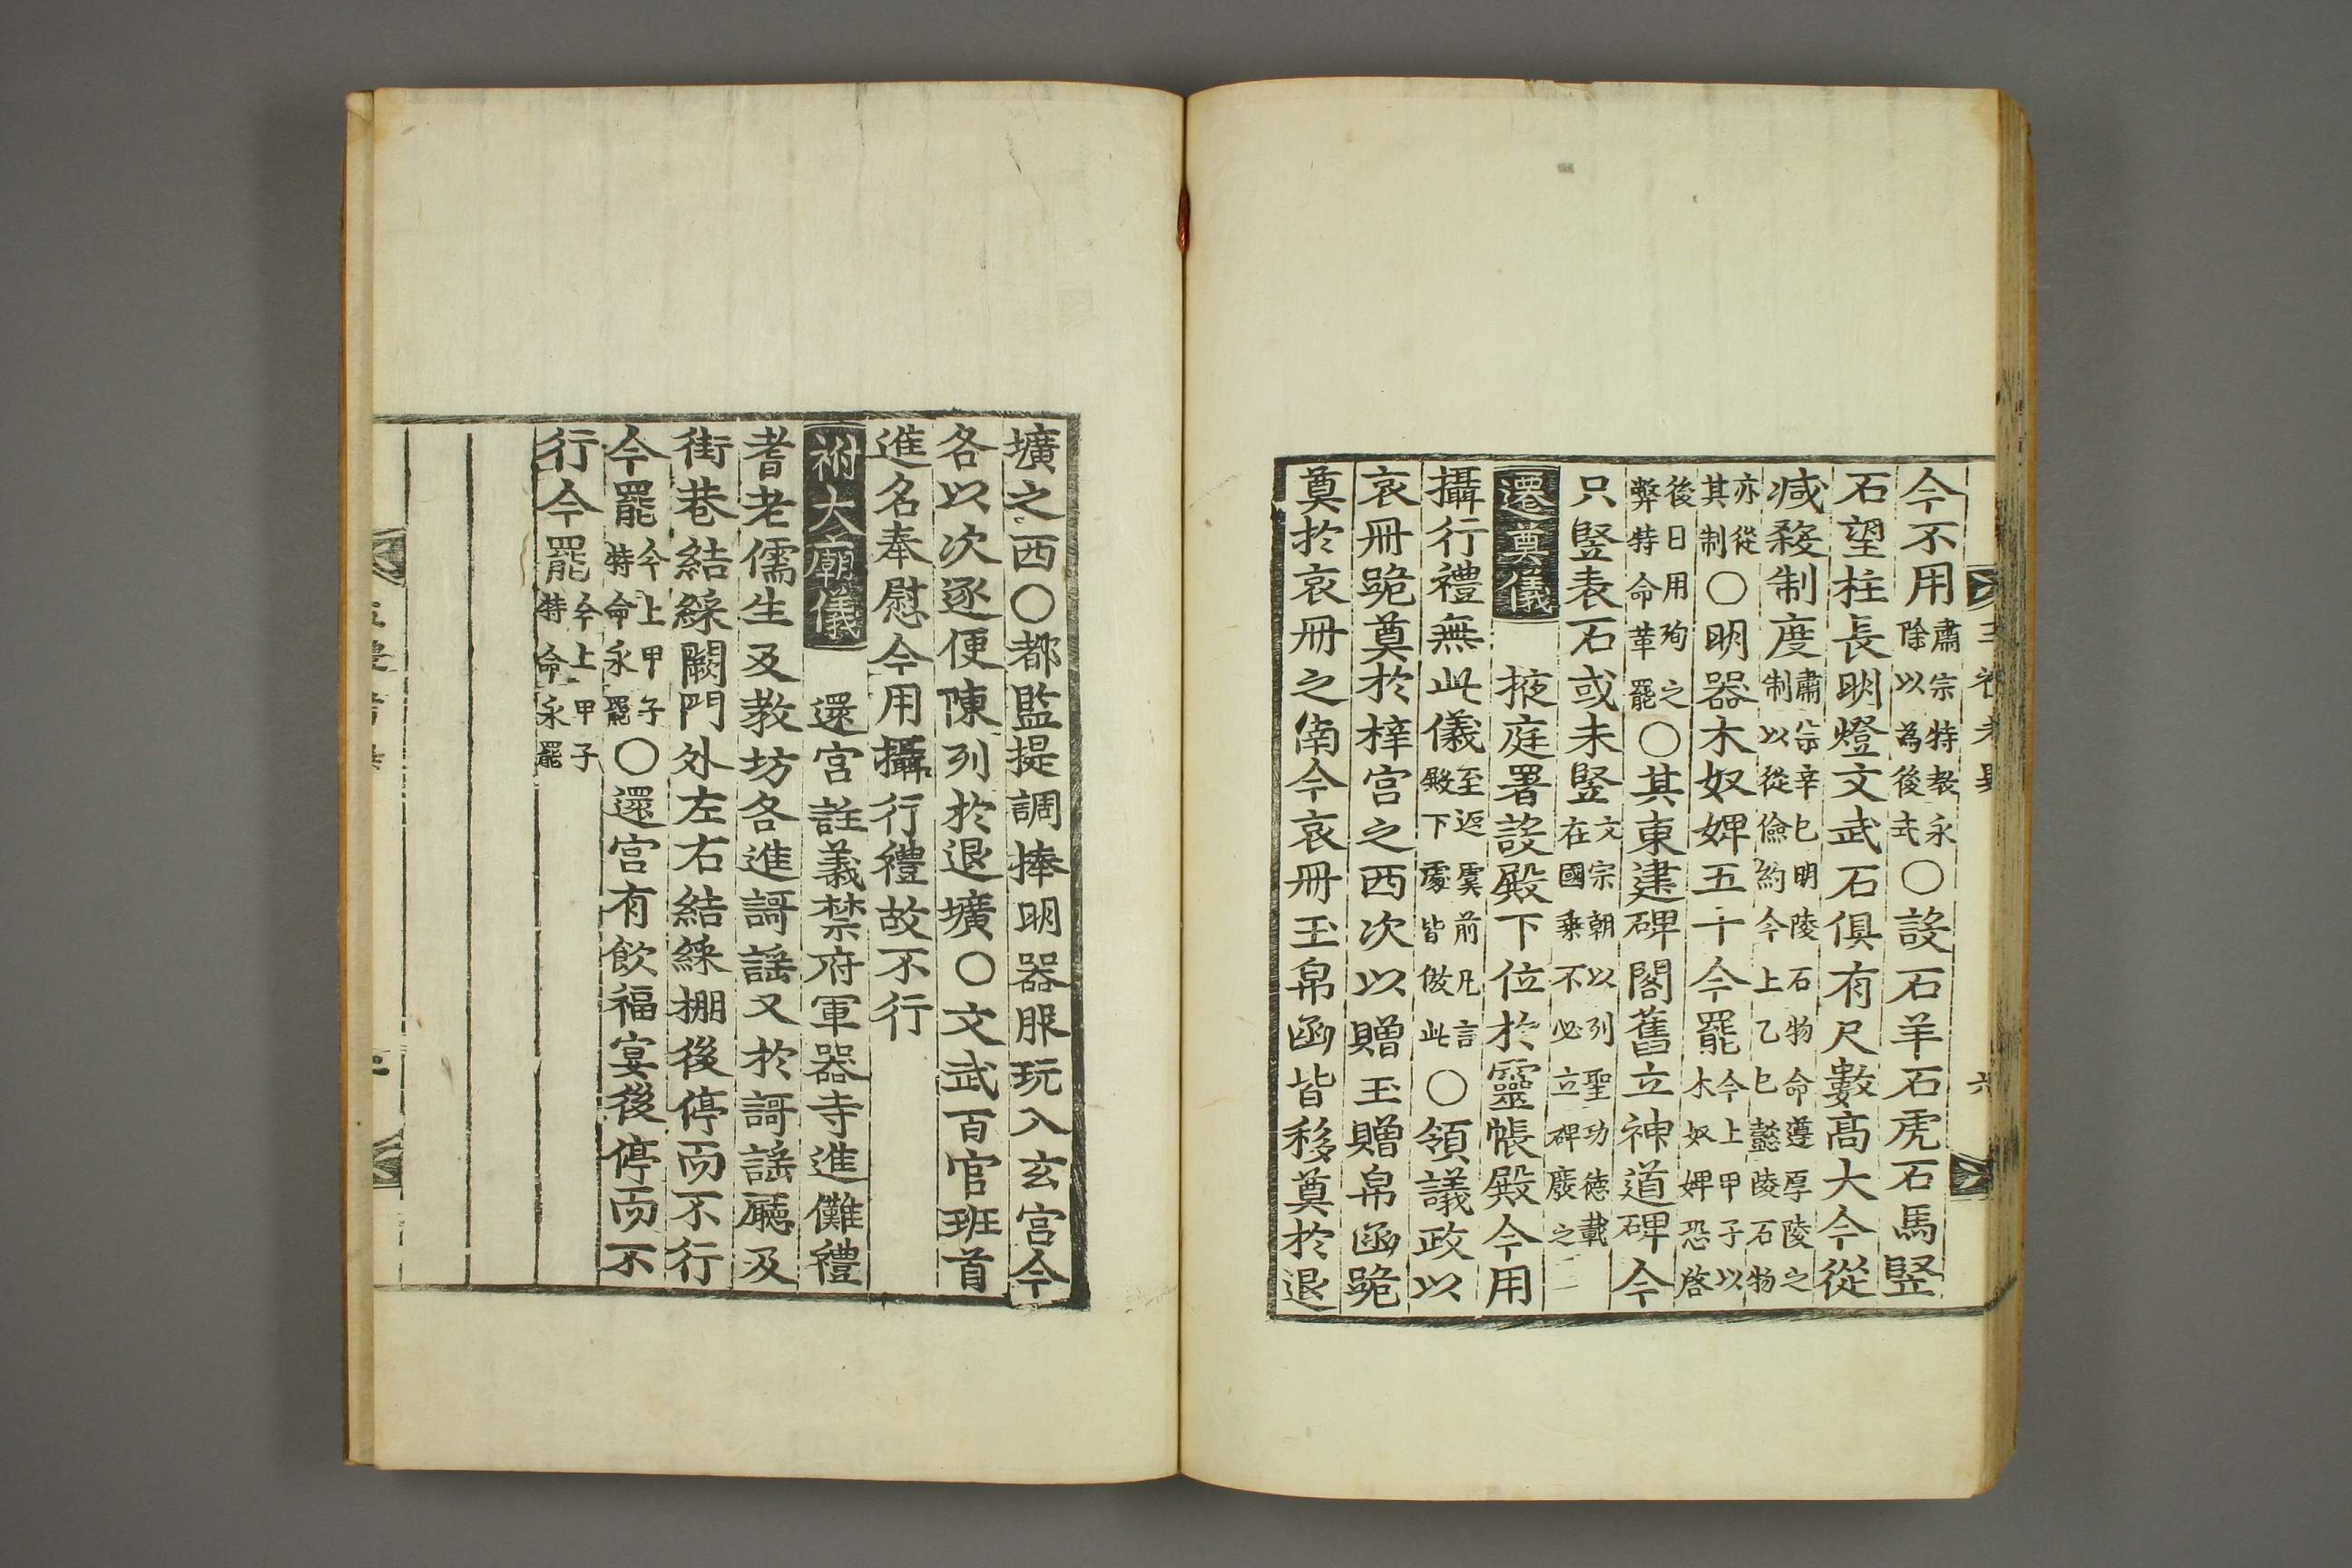 今不用肅宗特敎永除以為後式○設石羊石虎石馬竪
石望柱長明燈文武石俱有尺數高大今從
减殺制度肅宗辛巳明陵石物命遵厚陵之制以從儉約今上乙巳懿陵石物
亦從其制○明器木奴婢五十今罷今上甲子以木奴婢恐啓
後日用殉之弊特命革罷○其東建碑閣舊立神道碑今
只竪表石或未竪文宗朝以列聖功德載在國乗不必立碑廢之
遷奠儀 掖庭署設殿下位於靈帳殿今用
攝行禮無此儀至返虞前凡言殿下處皆倣此○領議政以
哀冊跪奠於梓宮之西次以贈玉贈帛函跪
奠於哀冊之南今哀冊玉帛函皆移奠於退
六
壙之西○都監提調捧明器服玩入玄宮今
各以次逐便陳列於退壙○文武百官班首
進名奉慰今用攝行禮故不行
祔大廟儀 還宮註義禁府軍器寺進儺禮
耆老儒生及教坊各進謌謡又於謌謡廳及
街巷結綵闕門外左右結綵棚後停而不行
今罷今上甲子特命永罷○還宮有飮福宴後停而不
行今罷今上甲子特命永罷